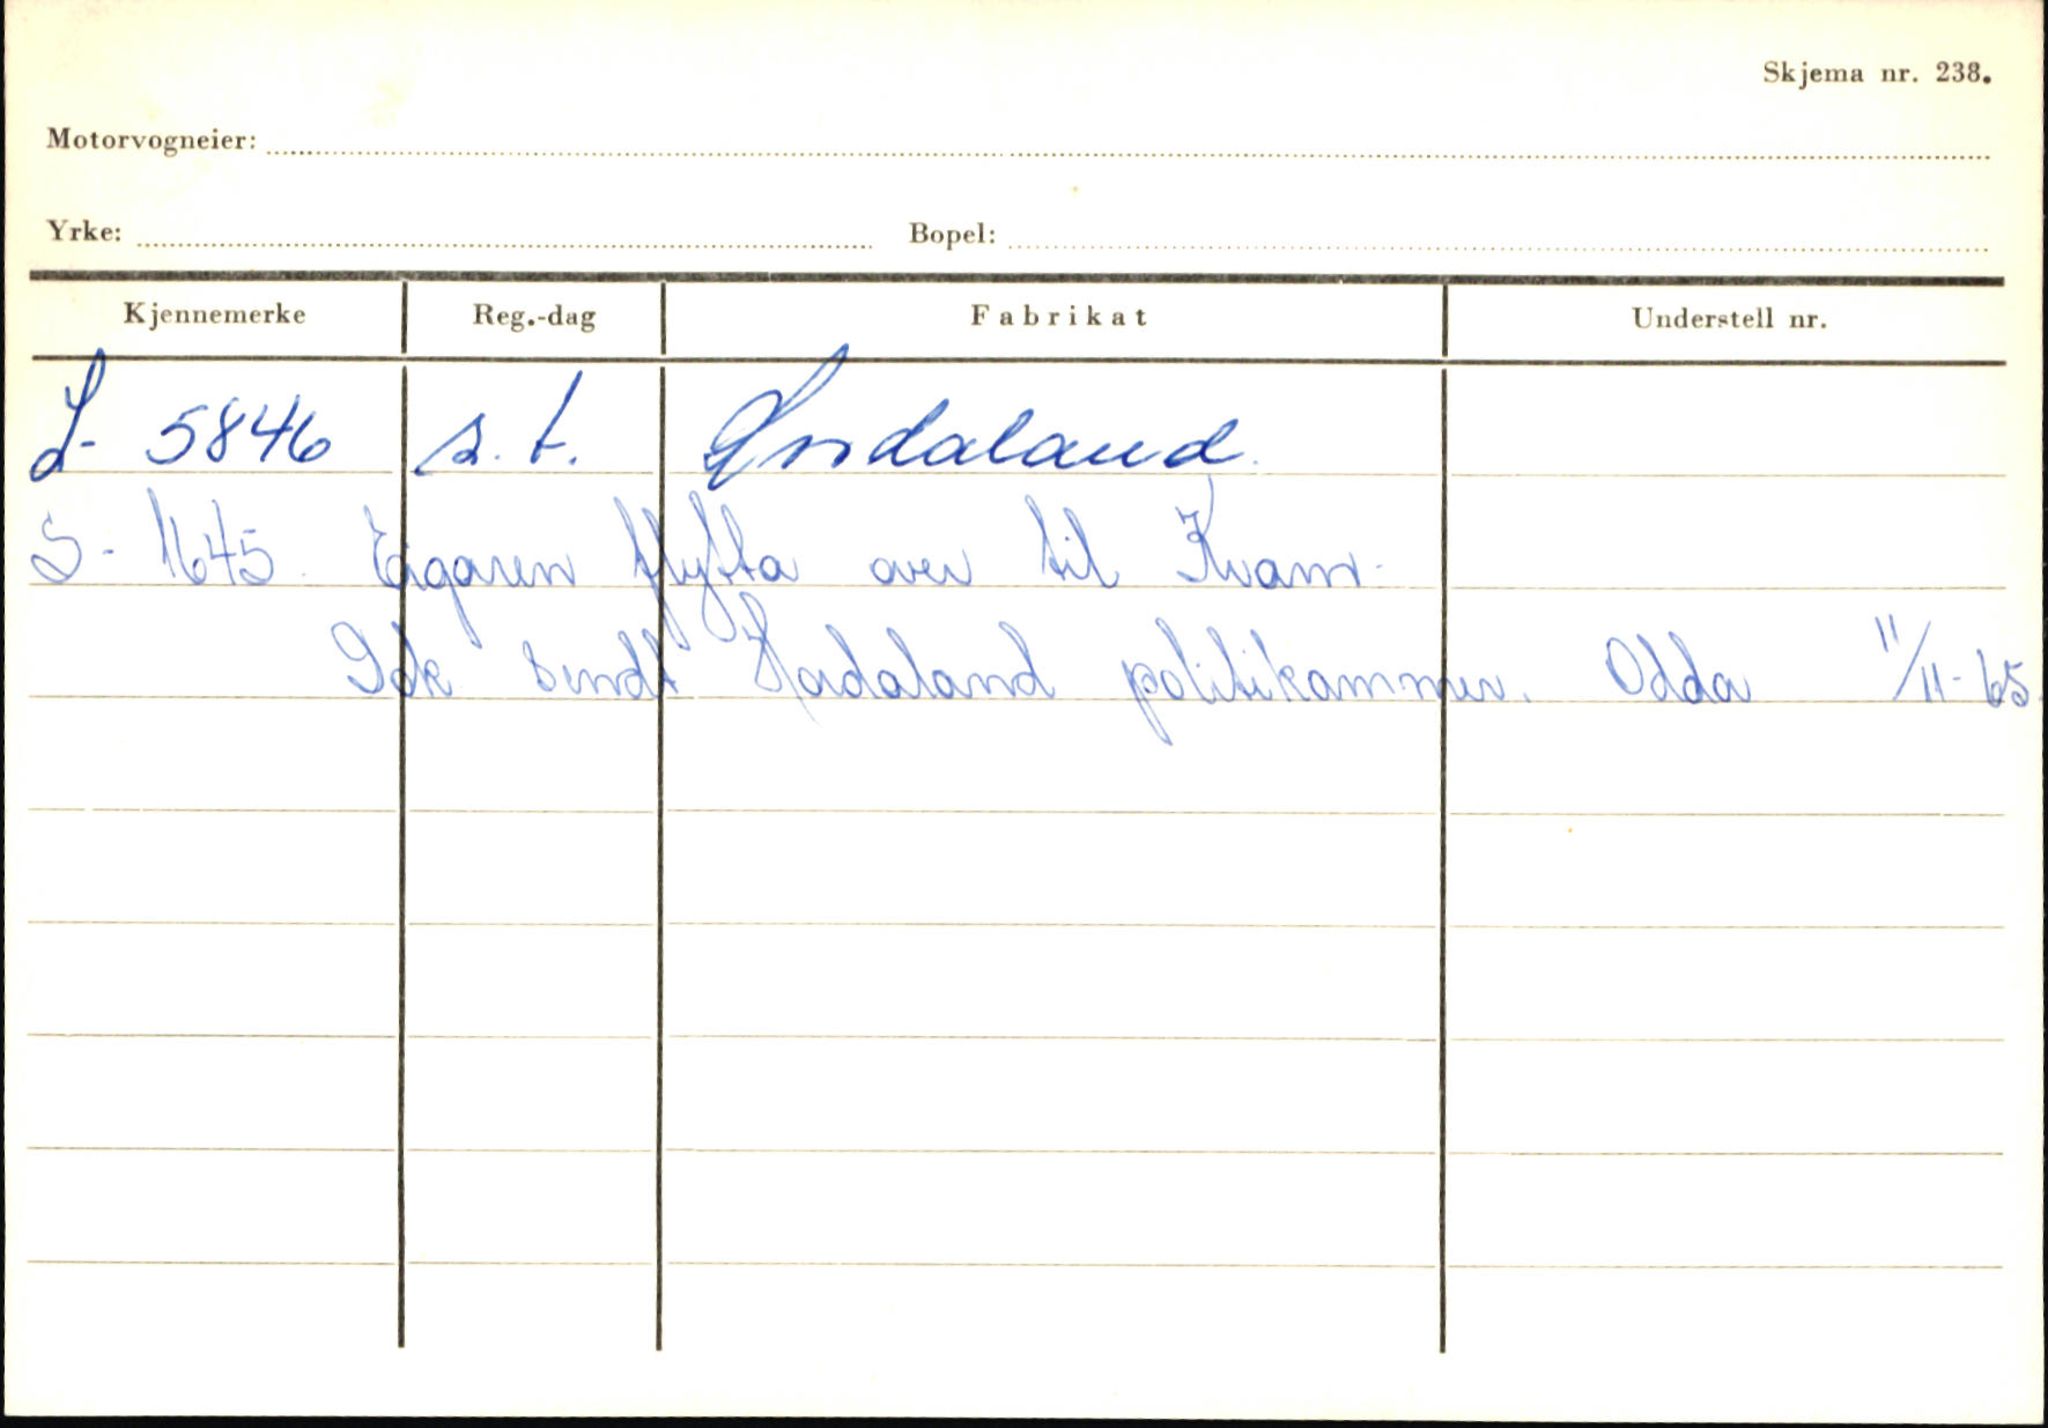 Skjema nr. 238.
Motorvogneier:
Yrke: Bopel:
Kjennemerke Reg.-dag Fabrikat Understell nr.
S- 5846 s. t. Hordaland.
S- 1645. Eigaren flytta over til Kvam.
Idk sendt Hordaland politikammer. Odda 11/11-65.